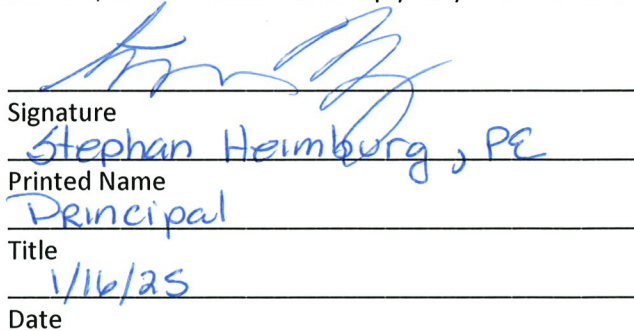 Signature
Stephan Heimburg, PE
Printed Name
Principal
Title
1/16/25
Date